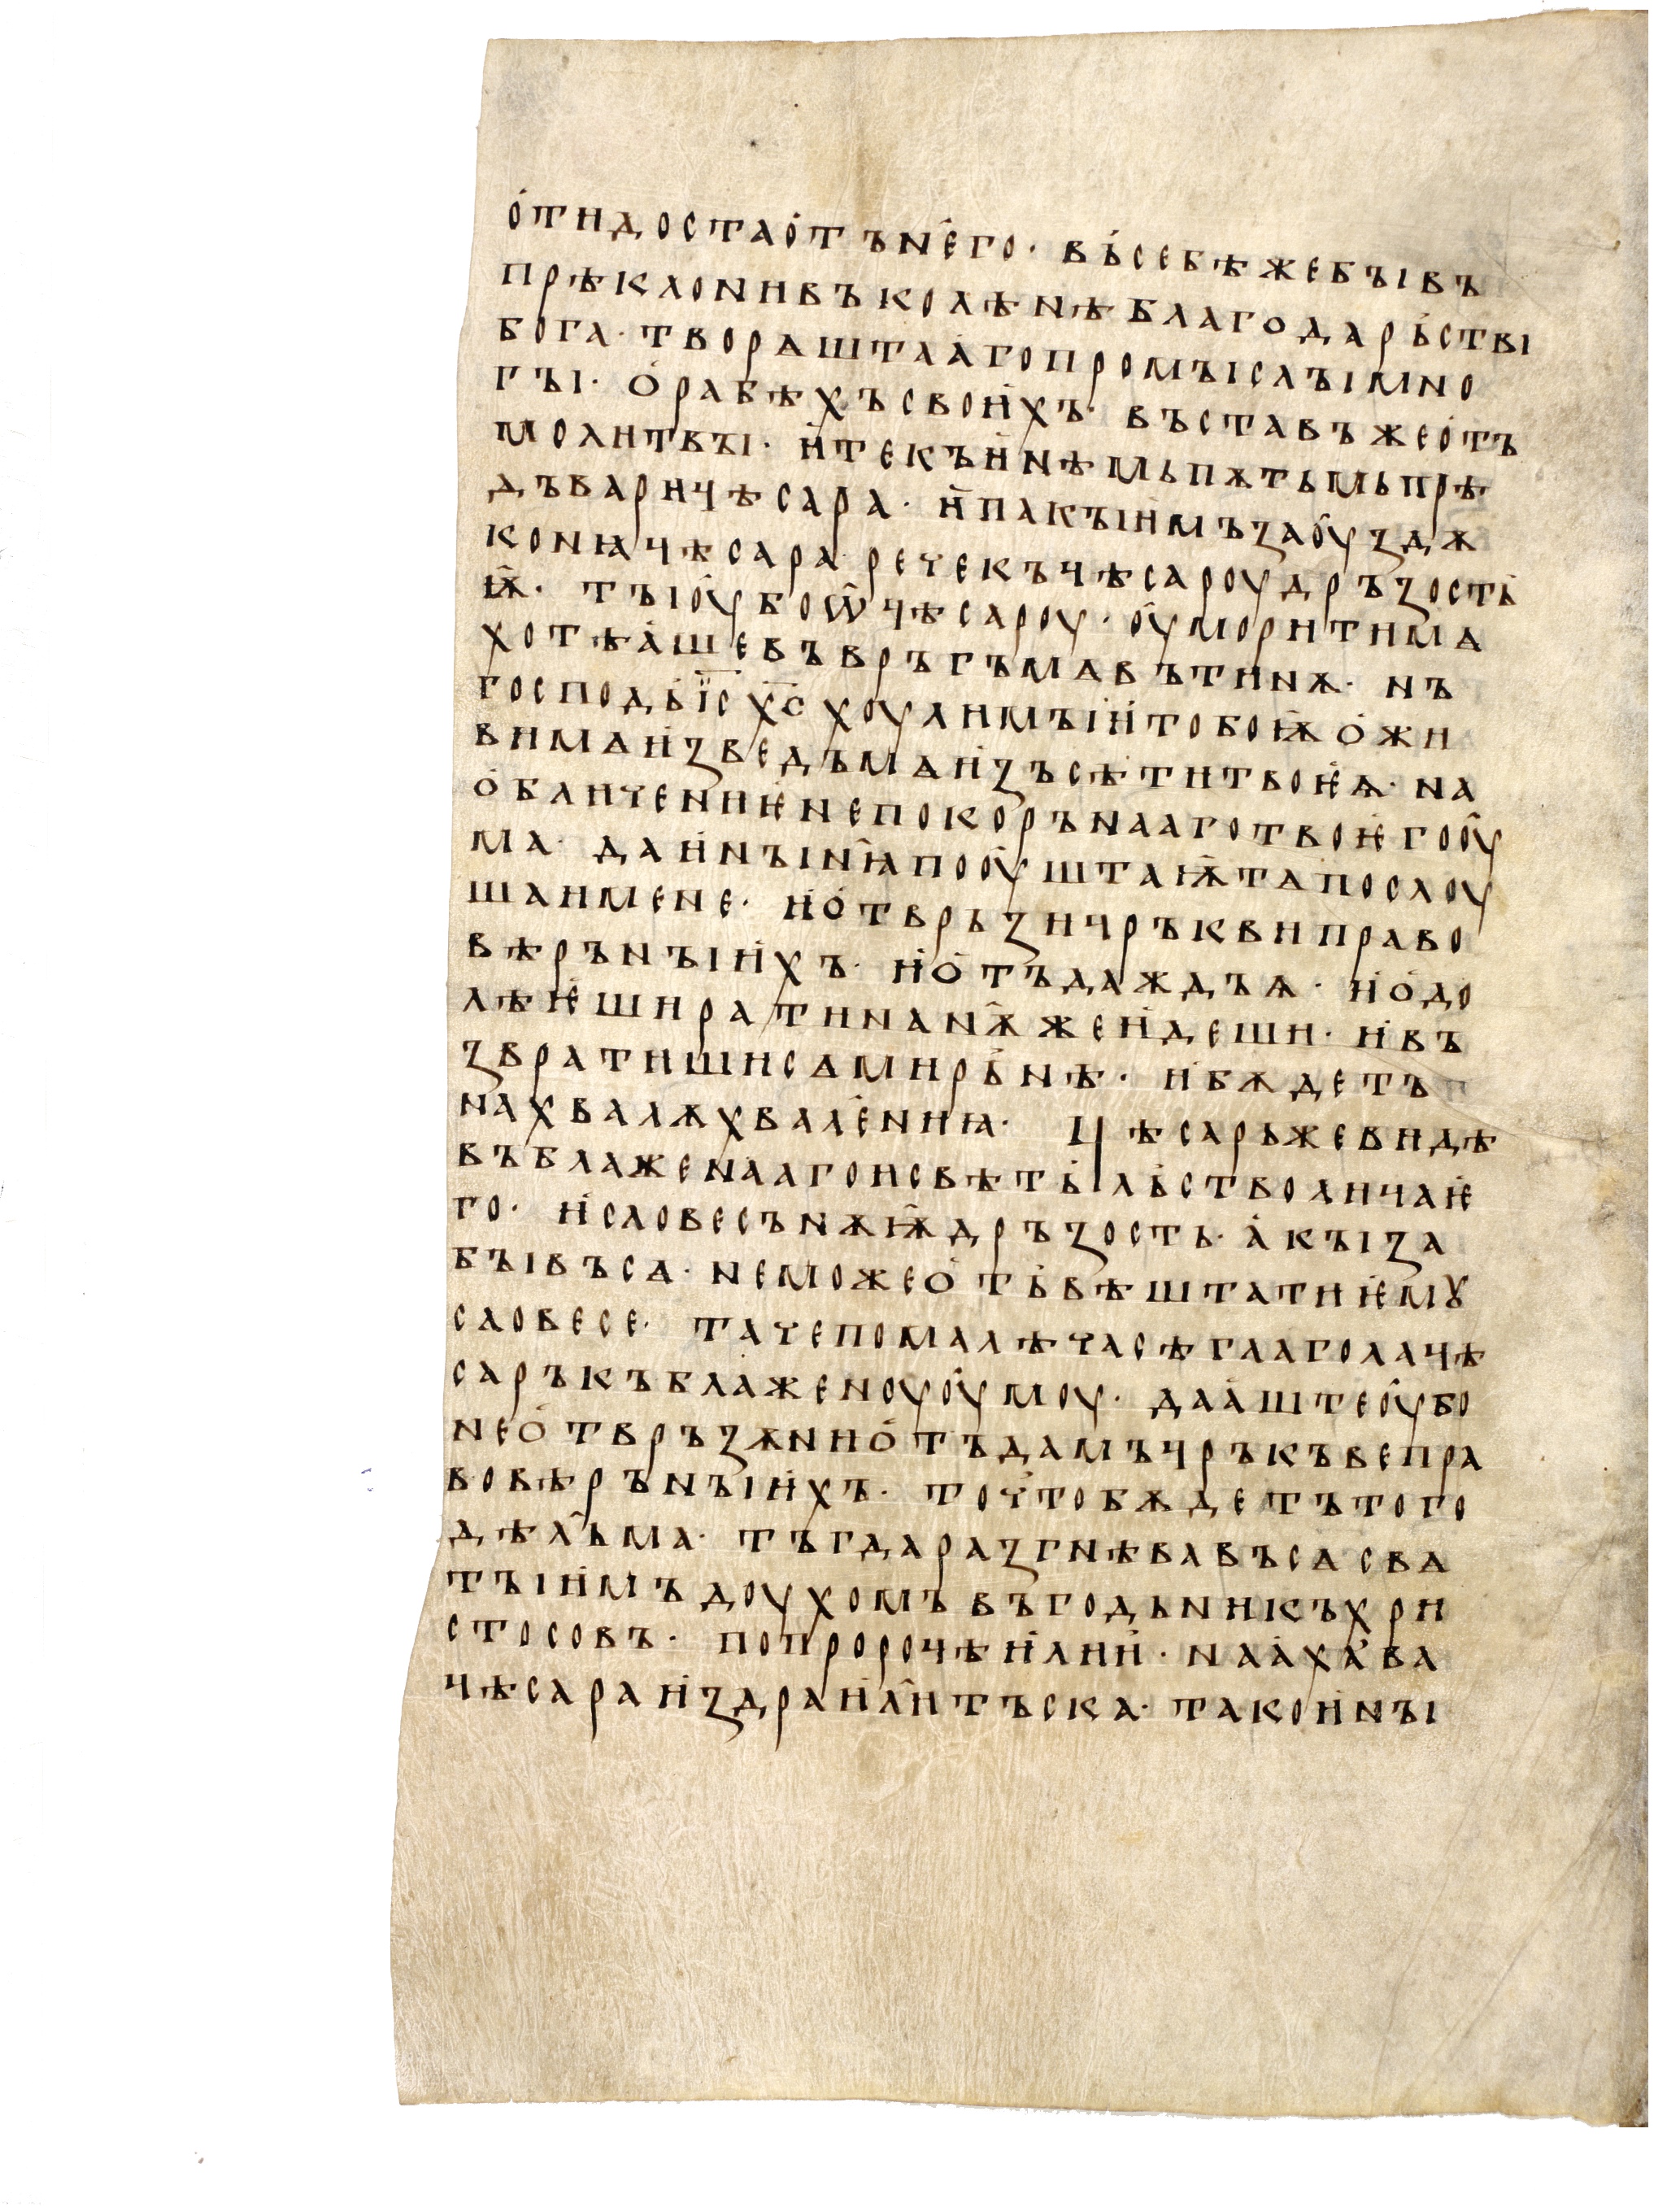 о́тидостао́тън҄его· вь́себѣжебꙑвъ
прѣклонивъколѣнѣблагодарь́стві
бога· творѧштаа́гопромꙑслꙑмно
гꙑ· о́рабѣхъсвои́хъ· въставъжео́тъ
молитвꙑ· и́текъи́нѣмьпѫтьмьпрѣ
дъваричѣсара· и́пакꙑи́мъꙁаоу҄ꙁдѫ
конꙗчѣсара речекъчѣсароудръꙁость
ѭ҄· тꙑоу҄боѡ҄чѣсароу· оу҄моритимѧ
хотѣа́шевъвръгъмѧвътинѫ· нъ
господь і҅с҅ х҅с҅ хоулимꙑи́тобоѭ҄о́жи
вимѧи́ꙁведъмѧи́ꙁъсѣтитвоѥ́ѩ· на
о́бличениѥ́непокоръנааготвоѥ́гооу҄
ма· даи́нꙑн҄ꙗпооу҄штаѭ҄тѧпослоу
шаимене· и́о́тврьꙁичръквиправо
вѣрънꙑи́хъ· и́о́тъдаждъѩ· и́о́до
лѣѥ́ширатинан҄ѫжеи́деши· и́въ
ꙁвратишисѧмирь́нѣ· и́бѫдетъ
нахвалѫхвал҄ениꙗ· Цѣсарьжевидѣ
въблаженаагоисвѣть́ль́стволичаѥ́
го· и́словесънѫѭ҄дръꙁость· а́кꙑꙁа
бꙑвъсѧ· неможео́тъ́вѣштатиѥ́мꙋ
словесе· тачепомалѣчасѣглаголачѣ
саръкъблаженоуоу҄моу· даа́штеоу҄бо
нео́твръꙁѫнио́тъдамъчръкъвепра
вовѣрънꙑи́хъ· точ́тобѫдетътого
дѣл҄ьма· тъгдараꙁгнѣвавъсѧсвѧ
тꙑи́мъдоухомъвъгодьникъхри
стосовъ· попророчѣи́лии́· наа́ха́ва
чѣсараи́ꙁдраи́л҄итъска· такои́нꙑ